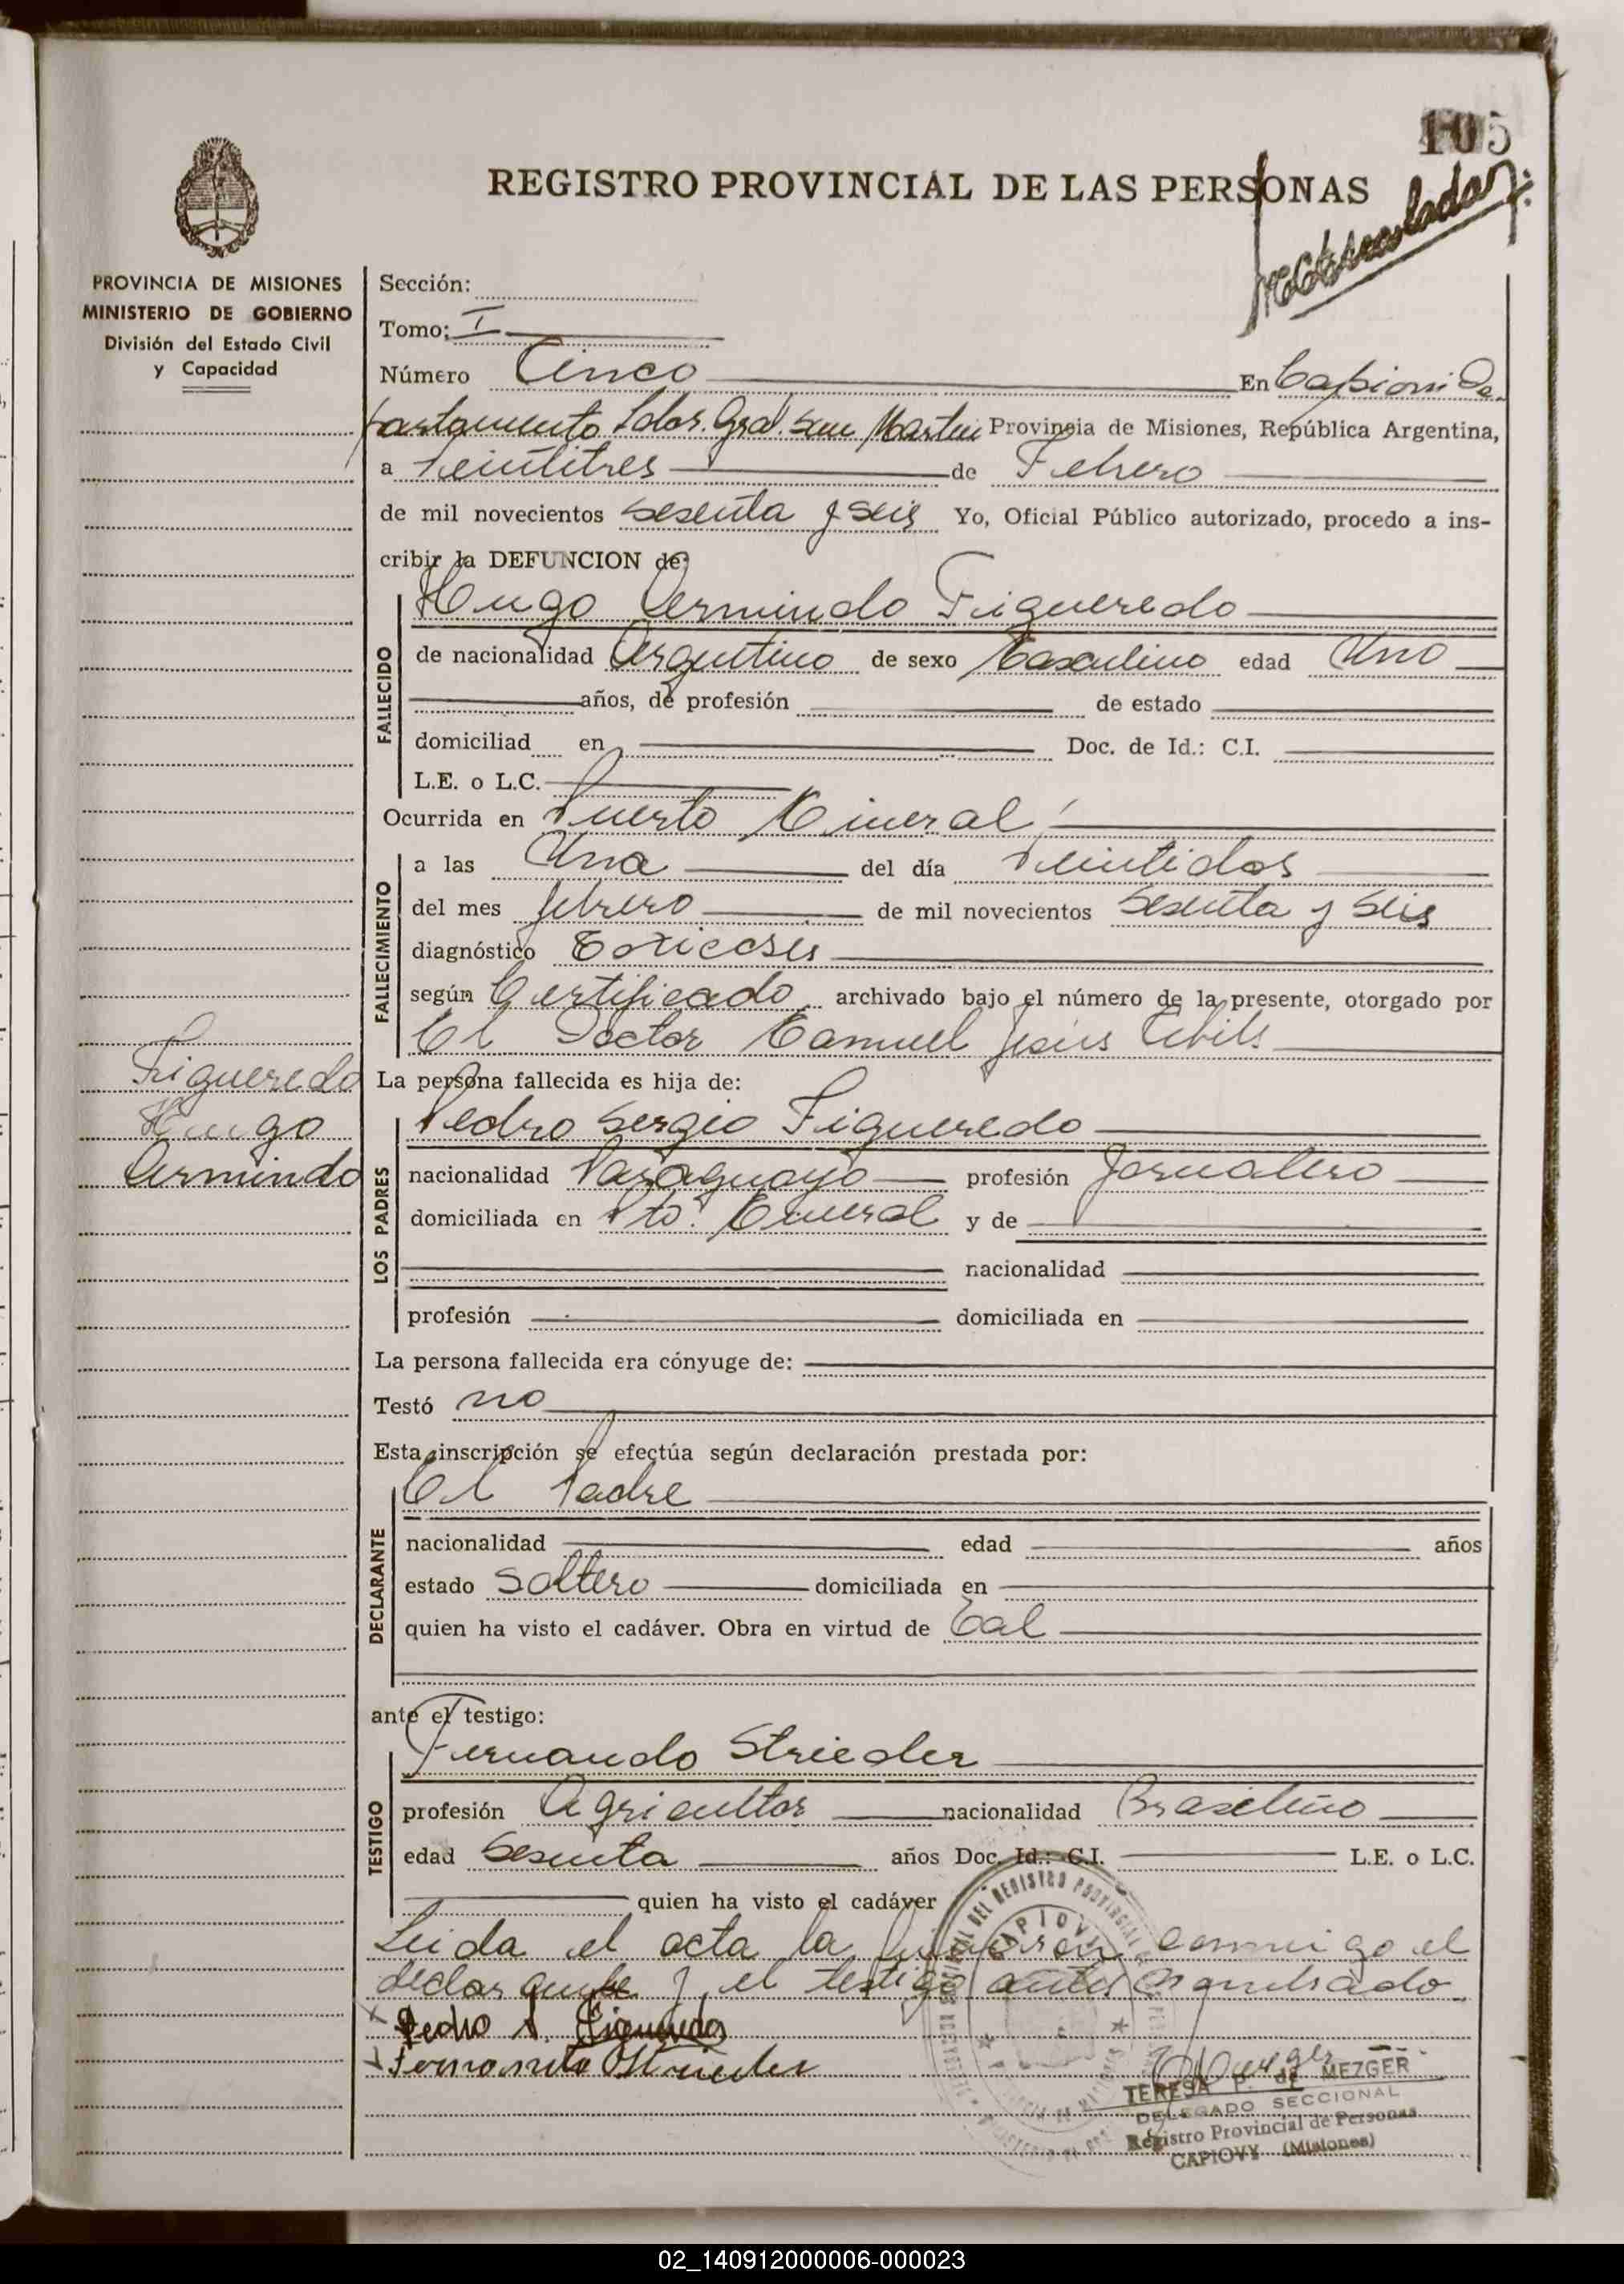 105
REGISTRO PROVINCIAL DE LAS PERSONAS
PROVINCIA DE MISIONES
MINISTERIO DE GOBIERNO
División del Estado Civil
y Capacidad
Sección:
Tomo: I
Número Cinco En Capiovi De
partamento Ldor. Gral. San Martin Provincia de Misiones, República Argentina,
a Veintitres de Febrero
de mil novecientos sesenta y seis Yo, Oficial Público autorizado, procedo a ins-
cribir la DEFUNCION de:
Hugo Armindo Figueredo
FALLECIDO
de nacionalidad Argentino de sexo Masculino edad Uno
años, de profesión de estado
domiciliad en Doc. de Id.: C.I.
L.E. o L.C.
Ocurrida en Puerto Mineral
FALLECIMIENTO
a las Una del día Veintidos
del mes febrero de mil novecientos Sesenta y Seis
diagnóstico Toxicosis
según Certificado archivado bajo el número de la presente, otorgado por
El Doctor Manuel Jesús
Figueredo
Hugo
Armindo
La persona fallecida es hija de:
Pedro Sergio Figueredo
LOS PADRES
nacionalidad Paraguayo profesión Jornalero
domiciliada en Pto. Mineral y de
nacionalidad
profesión domiciliada en
La persona fallecida era cónyuge de:
Testó no
Esta inscripción se efectúa según declaración prestada por:
El Padre
DECLARANTE
nacionalidad edad años
estado Soltero domiciliada en
quien ha visto el cadáver. Obra en virtud de Tal
ante el testigo:
Fernando Strieder
TESTIGO
profesión Agricultor nacionalidad Brasileño
edad Sesenta años Doc. Id.: C.I. L.E. o L.C.
quien ha visto el cadáver
Leida el acta la firmaron conmigo el
declarante y el testigo antes expresado
Pedro S. Figueredo
Fernando Strieder
TERESA P. de MEZGER
DELEGADO SECCIONAL
Registro Provincial de Personas
CAPIOVY (Misiones)
02_140912000006-000023